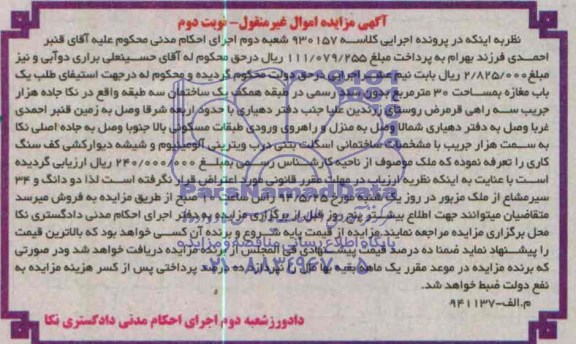 آگهی مزایده اموال غیرمنقول- نوبت دوم
نظربه اینکه در پرونده اجرایی کلاسه ۹۳۰۱۵۷ شعبه دوم اجرای احکام مدنی محکوم علیه آقای قنبر
احمدی فرزند بهرام به پرداخت مبلغ ۱۱۱/۰۷۹/۲۵۵ ریال درحق محکوم له آقای حسینعلی براری دوآبی و نیز
مبلغ ۲/۸۲۵/۰۰۰ ریال بابت نیم عشر اجرایی درحق دولت محکوم گردیده و محکوم له درجهت استیفای طلب یک
باب مغازه بمساحت ۳۰ مترمربع بدون سند رسمی در طبقه همکف یک ساختمان سه طبقه واقع در نکا جاده هزار
جریب سه راهی قرمرض روستای زرندین علیا جنب دفتر دهیاری با حدود اربعه شرقا وصل به زمین قنبر احمدی
غربا وصل به دفتر دهیاری شمالا وصل به منزل و راهروی ورودی طبقات مسکونی بالا جنوبا وصل به جاده اصلی نکا
به سمت هزار جریب با مشخصات ساختمانی اسکلت بتنی درب ویترینی آلومینیوم و شیشه دیوارکشی کف سنگ
کاری را تعرفه نموده که ملک موصوف از ناحیه کارشناس رسمی بمبلغ ۲۴۰/۰۰۰/۰۰۰ ریال ارزیابی گردیده
است با عنایت به اینکه نظریه ارزیاب در مهلت مقرر قانونی مورد اعتراض قرار نگرفته است لذا دو دانگ و ۳۴
سیرمشاع از ملک مزبور در روز یک شنبه مورخ ۹۴/۵/۲۵ راس ساعت صبح از طریق مزایده به فروش میرسد
متقاضیان میتوانند جهت اطلاع بیشتر پنج روز قبل از برگزاری مزایده به دفتر اجرای احکام مدنی دادگستری نکا
محل برگزاری مزایده مراجعه نمایند مزایده از قیمت پایه شروع و برنده آن کسی خواهد بود که بالاترین قیمت
را پیشنهاد نماید ضمنا ده درصد قیمت پیشنهادی فی المجلس از برنده مزایده دریافت خواهد شد ودر صورتی
که برنده مزایده در موعد مقرر یک ماهه بقیه بها مال را نپردازد ده درصد پرداختی پس از کسر هزینه مزایده به
نفع دولت ضبط خواهد شد.
م.الف-۹۴۱۱۳۷
دادورزشعبه دوم اجرای احکام مدنی دادگستری نکا
ParsNamadData
پایگاه اطلاع رسانی مناقصه و مزایده